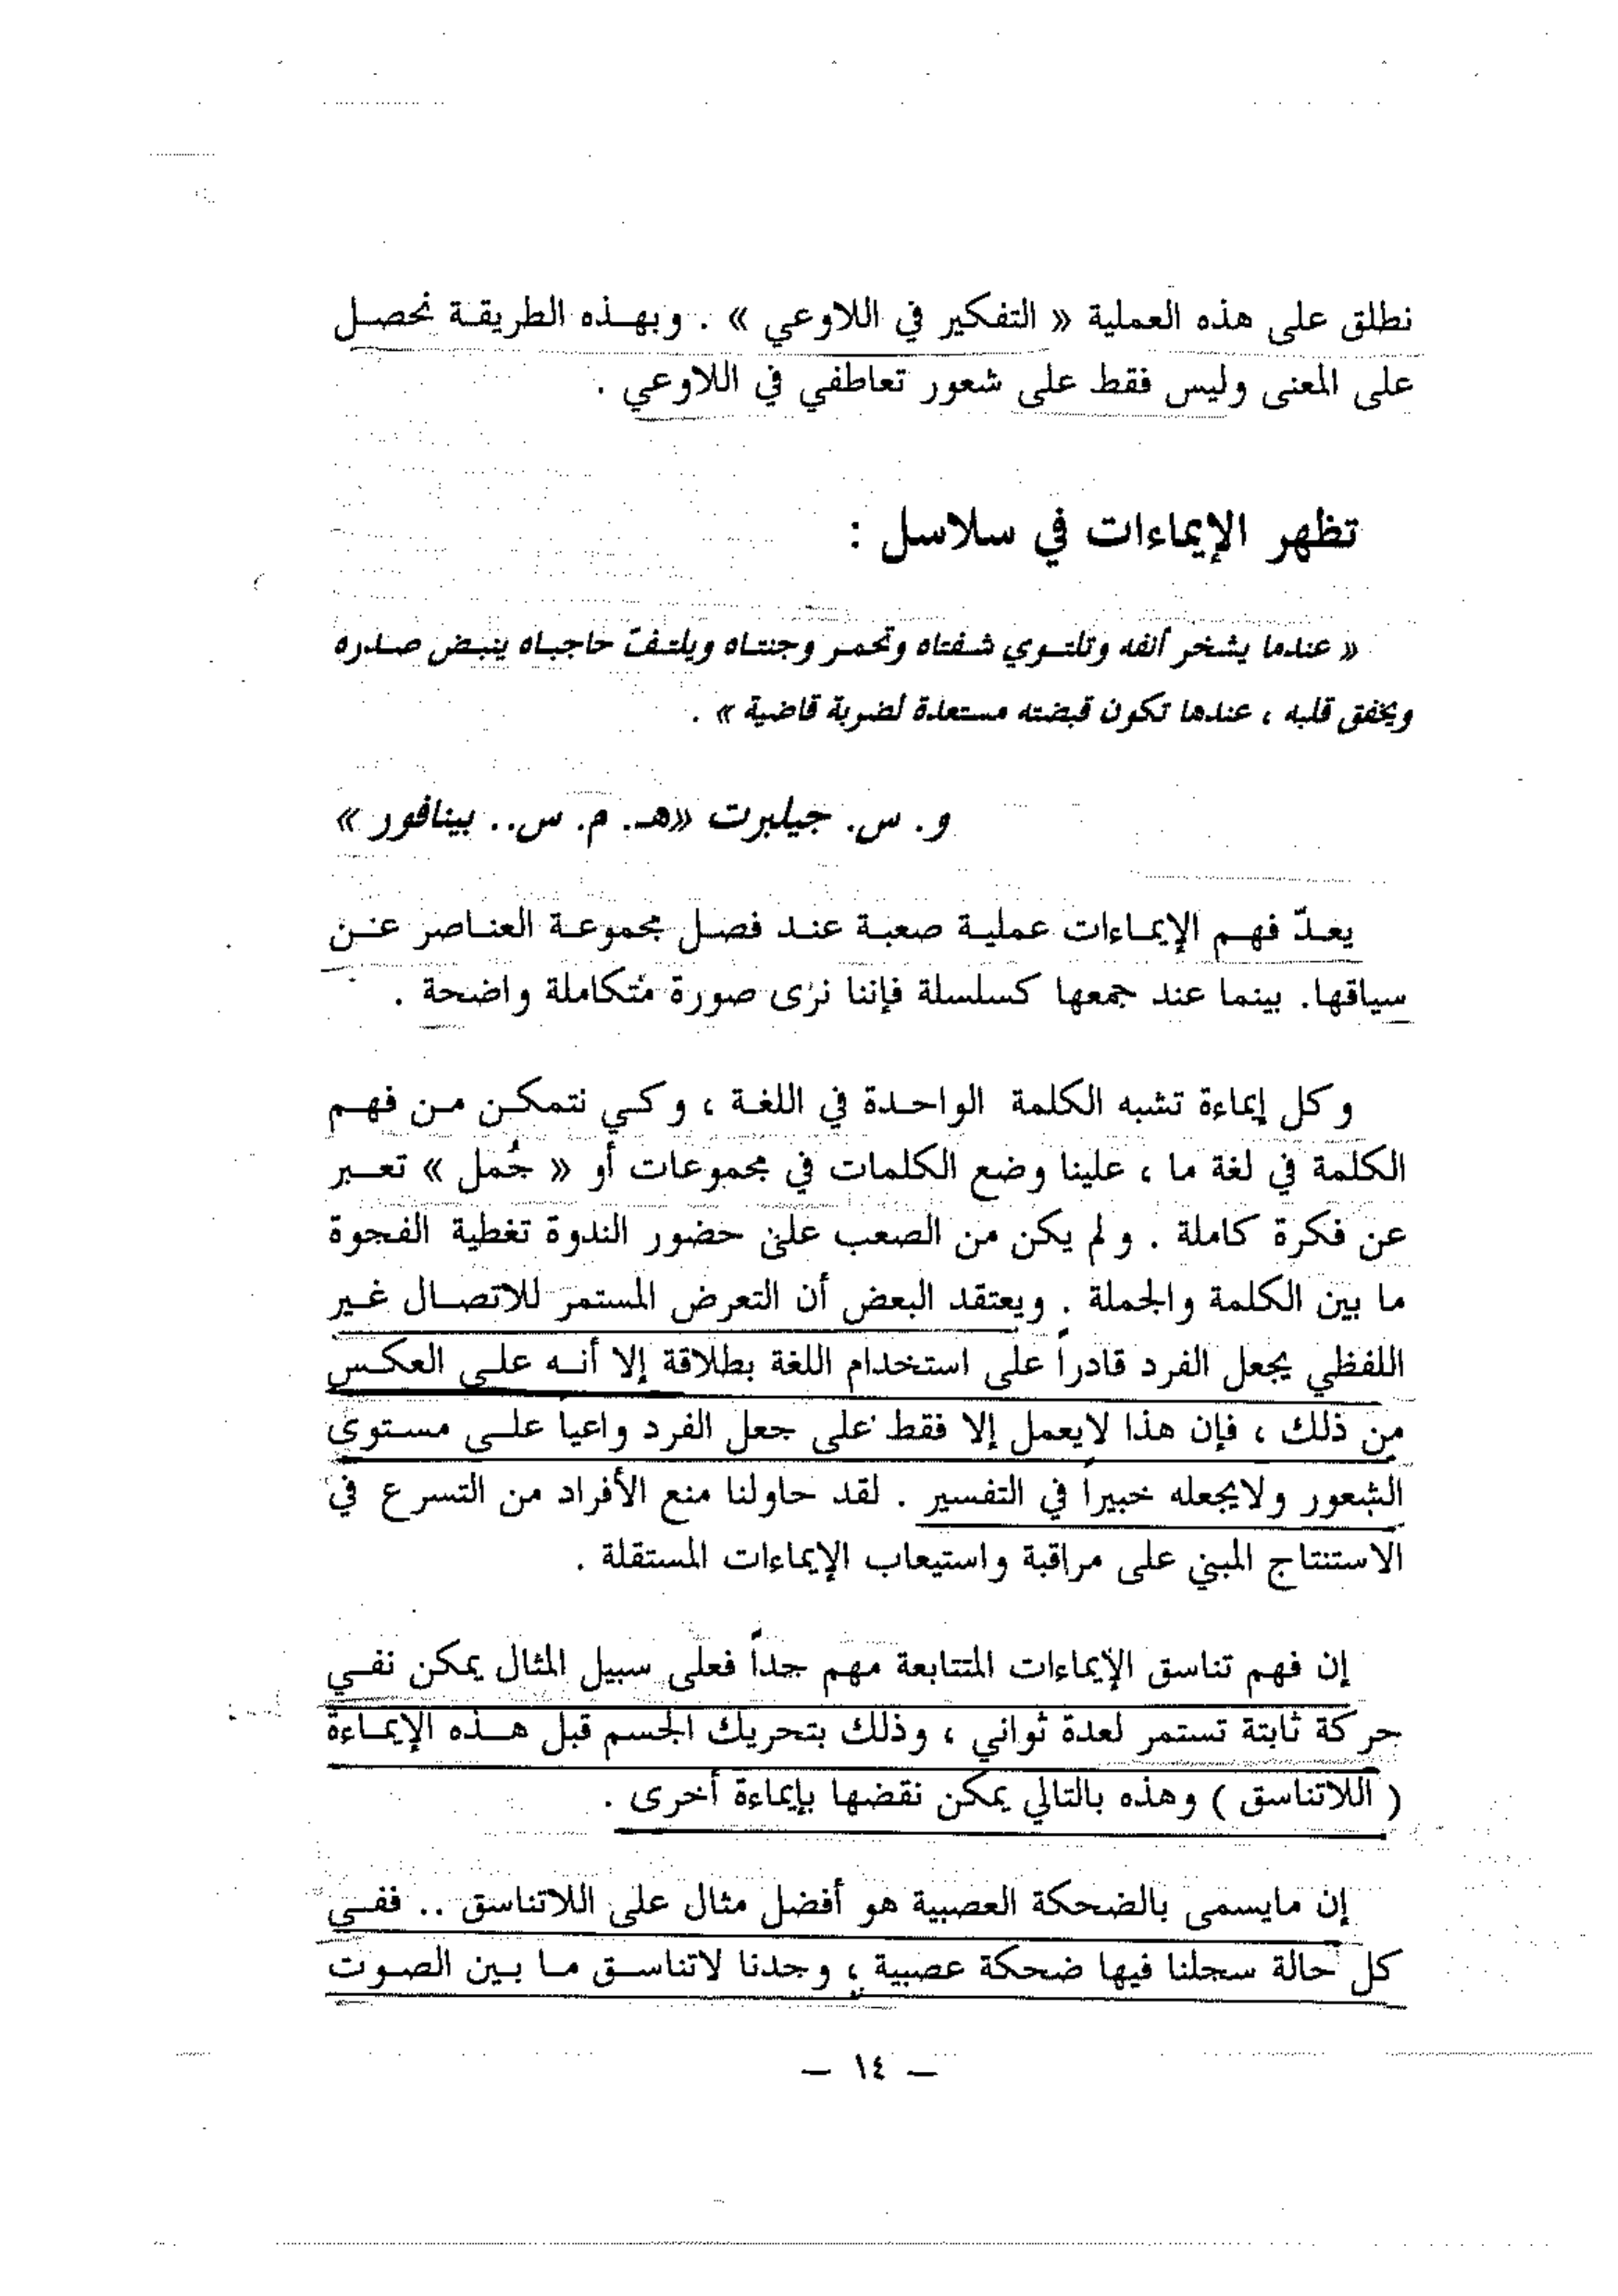 نطلق على هذه العملية « التفكير في اللاوعي » . وبهذه الطريقة نحصل
على المعنى وليس فقط على شعور تعاطفي في اللاوعي .
تظهر الإيماءات في سلاسل :
« عندما يشخر أنفه وتلتوي شفتاه وتحمر وجنتاه ويلتفّ حاجباه ينبض صدره
ويخفق قلبه ، عندها تكون قبضته مستعدة لضربة قاضية » .
و. س. جيلبرت «هـ. م. س.. بينافور »
يعدّ فهم الإيماءات عملية صعبة عند فصل مجموعة العناصر عن
سياقها. بينما عند جمعها كسلسلة فإننا نرى صورة متكاملة واضحة .
وكل إيماءة تشبه الكلمة الواحدة في اللغة ، وكي نتمكن من فهم
الكلمة في لغة ما ، علينا وضع الكلمات في مجموعات أو « جُمل » تعبر
عن فكرة كاملة . ولم يكن من الصعب على حضور الندوة تغطية الفجوة
ما بين الكلمة والجملة . ويعتقد البعض أن التعرض المستمر للاتصال غير
اللفظي يجعل الفرد قادراً على استخدام اللغة بطلاقة إلا أنه على العكس
من ذلك ، فإن هذا لايعمل إلا فقط على جعل الفرد واعياً على مستوى
الشعور ولايجعله خبيراً في التفسير . لقد حاولنا منع الأفراد من التسرع في
الاستنتاج المبني على مراقبة واستيعاب الإيماءات المستقلة .
إن فهم تناسق الإيماءات المتتابعة مهم جداً فعلى سبيل المثال يمكن نفي
حركة ثابتة تستمر لعدة ثواني ، وذلك بتحريك الجسم قبل هذه الإيماءة
( اللاتناسق ) وهذه بالتالي يمكن نقضها بإيماءة أخرى .
إن مايسمى بالضحكة العصبية هو أفضل مثال على اللاتناسق .. ففي
كل حالة سجلنا فيها ضحكة عصبية ، وجدنا لاتناسق ما بين الصوت
— ١٤ —